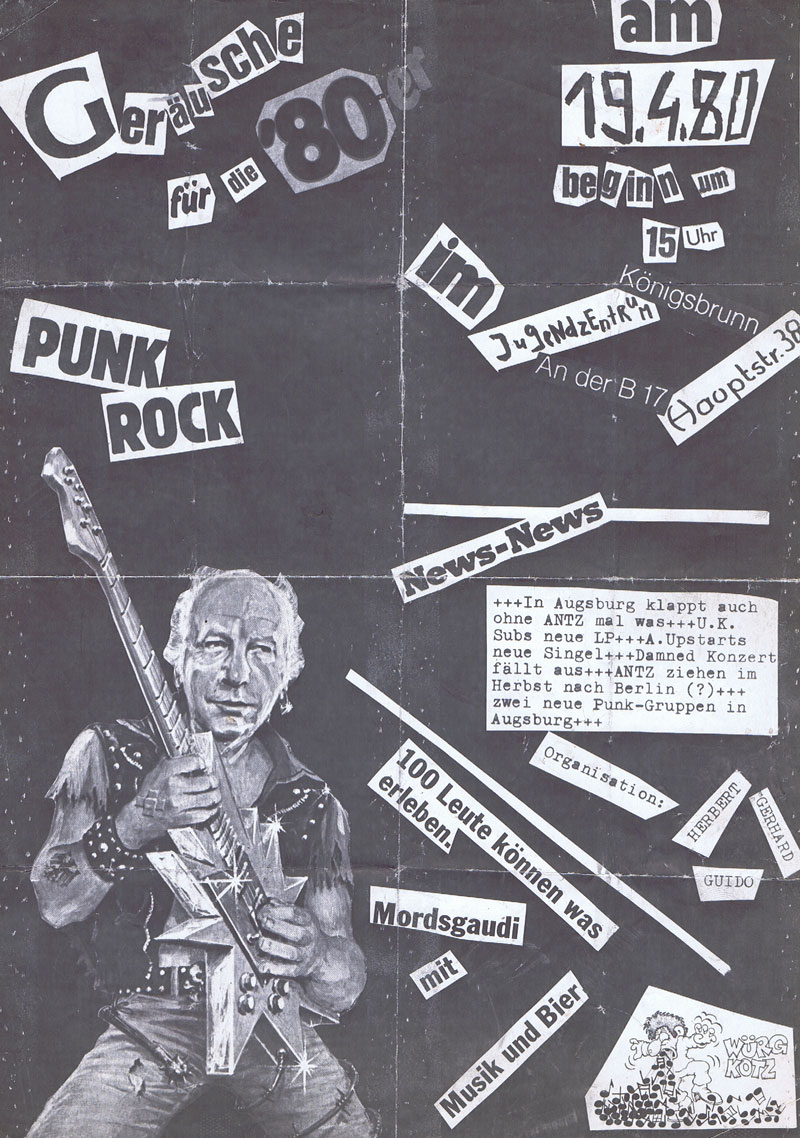 Geräusche
für die '80er
am
19.4.80
beginn um
15 Uhr
im
Jugendzentrum
Königsbrunn
An der B 17
Hauptstr. 38
PUNK
ROCK
News-News
+++In Augsburg klappt auch
ohne ANTZ mal was+++U.K.
Subs neue LP+++A.Upstarts
neue Singel+++Damned Konzert
fällt aus+++ANTZ ziehen im
Herbst nach Berlin (?)+++
zwei neue Punk-Gruppen in
Augsburg+++
Organisation:
HERBERT
GERHARD
GUIDO
100 Leute können was
erleben.
Mordsgaudi
mit
Musik und Bier
WÜRG
KOTZ